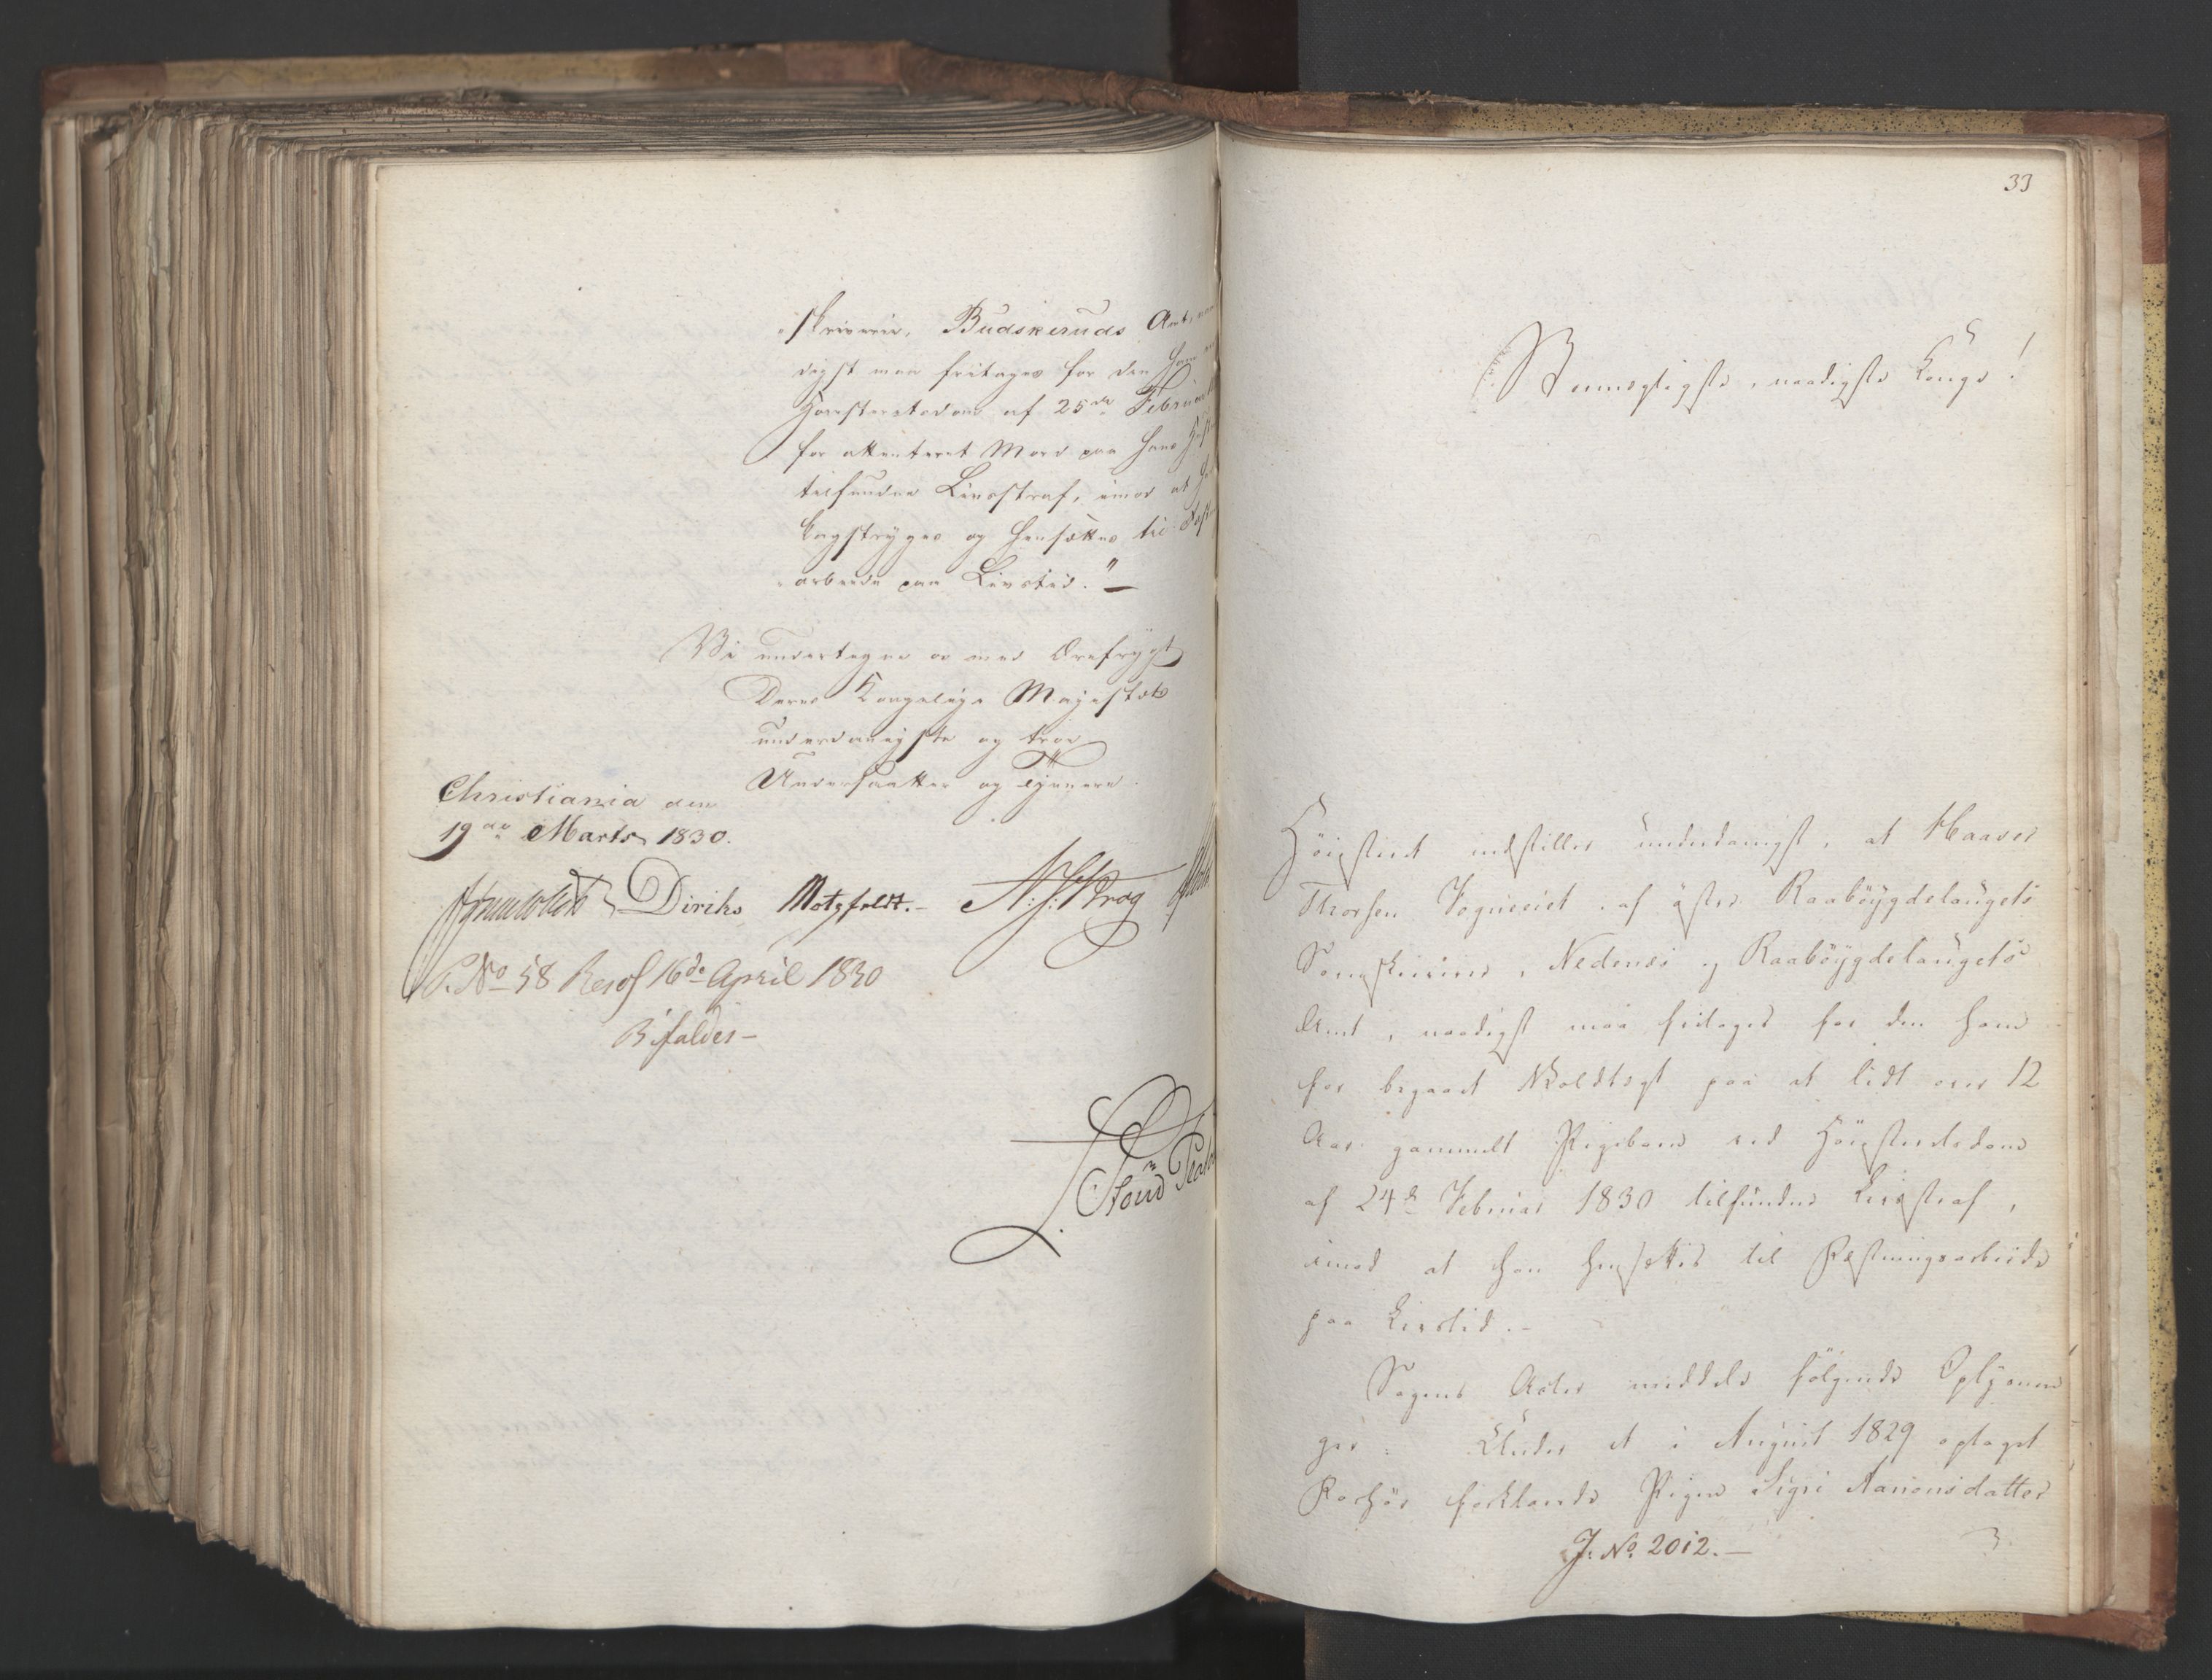 skriverie, Budskeruds Amt,
digst maa fritages for den ham
Høiesteretsdom af 25de Februar
for attenteret Mord paa hans
tilfundne Livsstraf, imod at han
kagstryges og hensættes til
arbeide paa Livstid."
Vi undertegne os med Ærefrygt
Deres Kongelige Majestæts
underdanigste og troe
Undersaatter og Tjenere.
Christiania den
19de Marts 1830.
Diriks Motzfeldt. N. J. Krog
P. No 58 Resol 16de April 1830
Bifaldes
33
Stormægtigste, naadigste Konge!
Höiesteret indstiller underdanigst, at Haaver
Thorsen af öster Raaböygdelaugets
Sorenskriverie, Nedenes og Raaböygdelaugets
Amt, naadigst maa fritages for den ham
for begaaet Woldtægt paa et lidt over 12
Aar gammelt Pigebarn ved Höiesteretsdom
af 24de Februar 1830 tilfundne Livsstraf,
imod at han hensættes til Fæstningsarbeide
paa Livstid.
Sagens Acter meddele fölgende Oplysnin
ger: Under et i August 1829 optaget
Forhör forklarede Pigen Sigri Aanonsdatter
J. No. 2012.